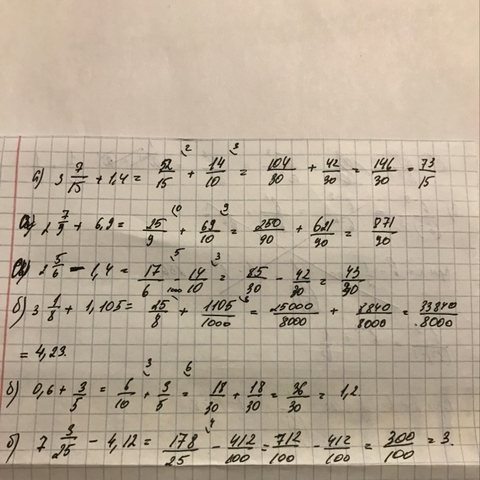 а) 3 7/15 + 1,4 = 52/15 + 14/10 = 104/30 + 42/30 = 146/30 = 73/15
2 7/9 + 6,9 = 25/9 + 69/10 = 250/90 + 621/90 = 871/90
2 5/6 - 1,4 = 17/6 - 14/10 = 85/30 - 42/30 = 43/30
б) 3 1/8 + 1,105 = 25/8 + 1105/1000 = 25000/8000 + 8840/8000 = 33840/8000
= 4,23.
б) 0,6 + 3/5 = 6/10 + 3/5 = 18/30 + 18/30 = 36/30 = 1,2
б) 7 3/25 - 4,12 = 178/25 - 412/100 = 712/100 - 412/100 = 300/100 = 3.